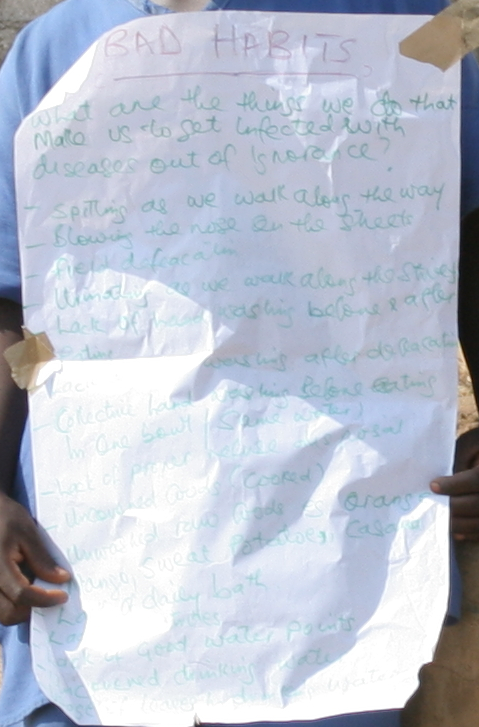 BAD HABITS
What are the things we do that
Make us to get infected with
diseases out of ignorance?
- Spitting as we walk along the way
- Blowing the nose on the streets
- Field defecation
- Urinating as we walk along the streets
- Lack of hand washing before & after
eating
- Lack washing after defecation
- Collective hand washing before eating
in one bowl (same water)
- Lack of proper refuse disposal
- Uncovered foods (cooked)
- Unwashed raw foods eg orange
mango, sweat potatoes, casava
- daily bath
-
- Lack of Good water points
- Uncovered drinking water